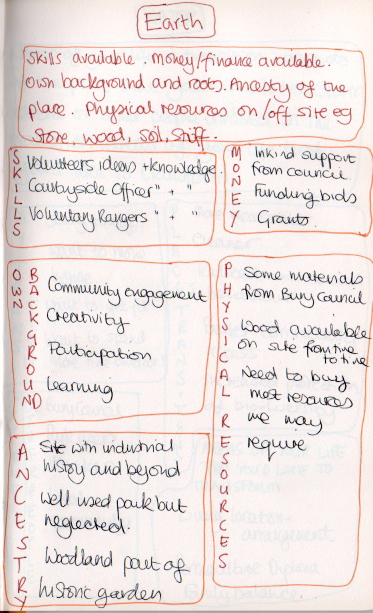 Earth
Skills available. Money/finance available.
Own background and roots. Ancesty of the
place. Physical resources on/off site eg
Stone, wood, soil, stuff.
SKILLS
Volunteers ideas + knowledge.
Countyside Officer " + "
Voluntary Rangers " + "
MONEY
Inkind support
from council
Funding bids
Grants.
OWN BACKGROUND
Community engagement
Creativity
Participation
Learning
PHYSICAL RESOURCES
Some materials
from Bury Council
Wood available
on site from time
to time
Need to buy
most resources
we may
require
ANCESTRY
Site with industrial
history and beyond
Well used park but
neglected.
Woodland part of
historic garden